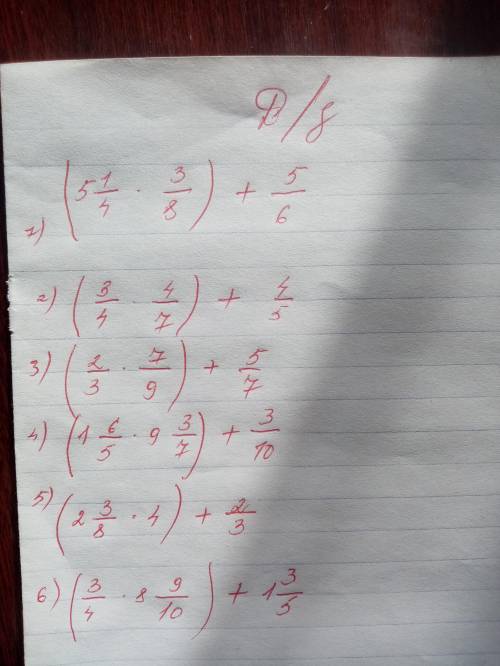 D/z
1) (5 1/4 · 3/8) + 5/6
2) (3/4 · 4/7) + 4/5
3) (2/3 · 7/9) + 5/7
4) (1 6/5 · 9 3/7) + 3/10
5) (2 3/8 · 4) + 2/3
6) (3/4 · 8 9/10) + 1 3/5